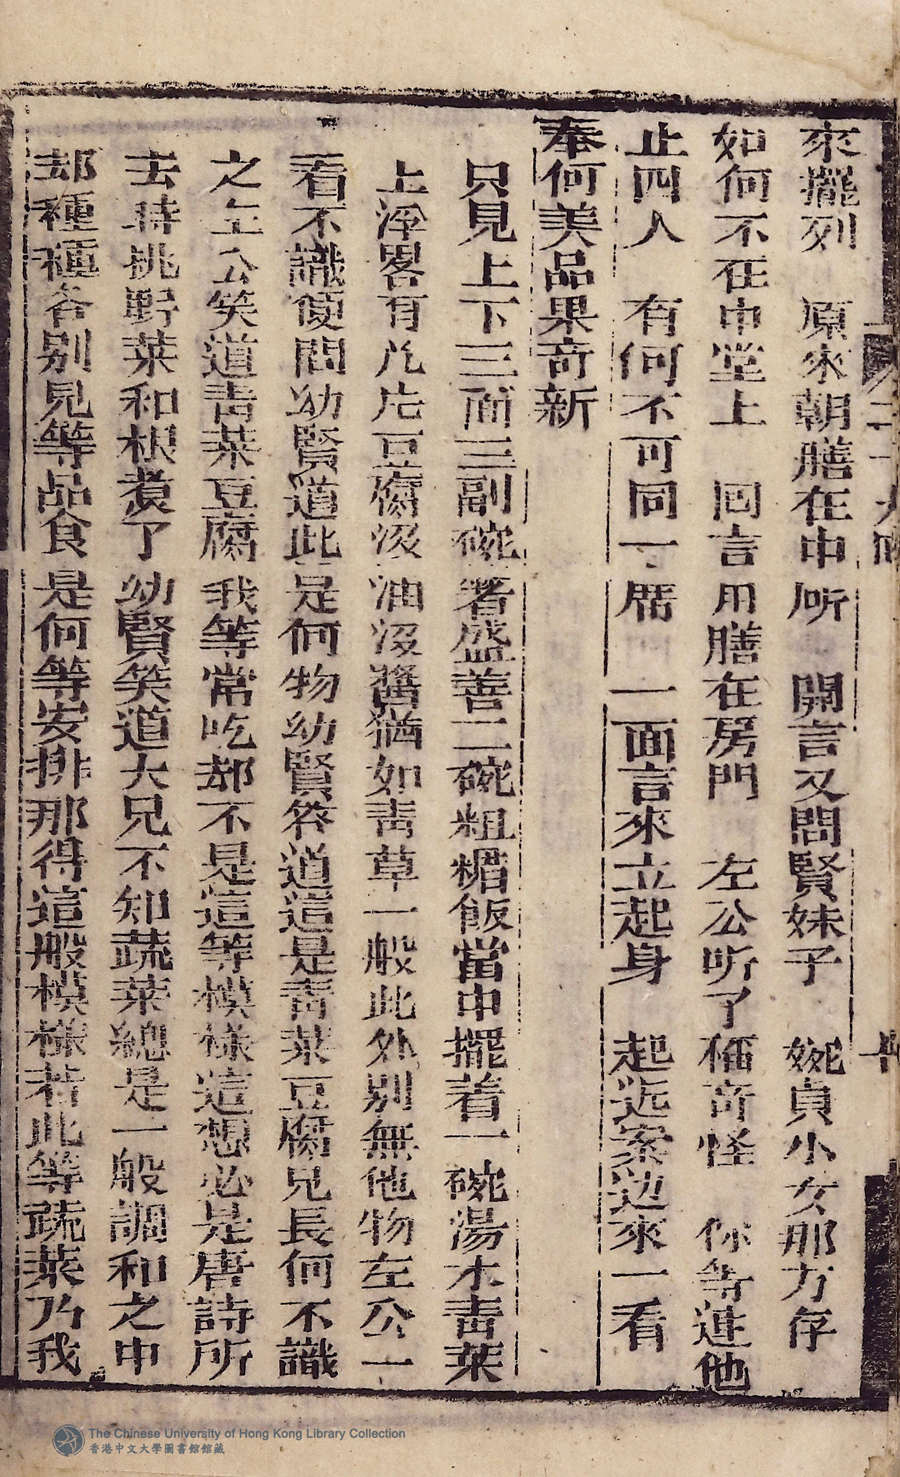 來擺列　原來朝膳在中所　開言又問賢妹子　婉貞小女那方存
如何不在中堂上　回言用膳在房門　左公听了称奇怪　你等連他
止四人　有何不可同一席　一面言來立起身　起近案边來一看
奉何美品果奇新
只見上下三面三副碗著盛善二碗粗糲飯當中擺着一碗湯水青菜
上浮畧有几片豆腐没油没醬猶如青草一般此外别無他物左公一
看不識便問幼賢道此是何物幼賢答道這是青菜豆腐兄長何不識
之左公笑道青菜豆腐我等常吃却不是這等模樣這想必是唐詩所
去時挑野菜和根煮了幼賢笑道大兄不知蔬菜總是一般調和之中
却種種各别見等品食是何等安排那得這般模樣若此等蔬菜乃我
二十九
The Chinese University of Hong Kong Library Collection
香港中文大學圖書館館藏